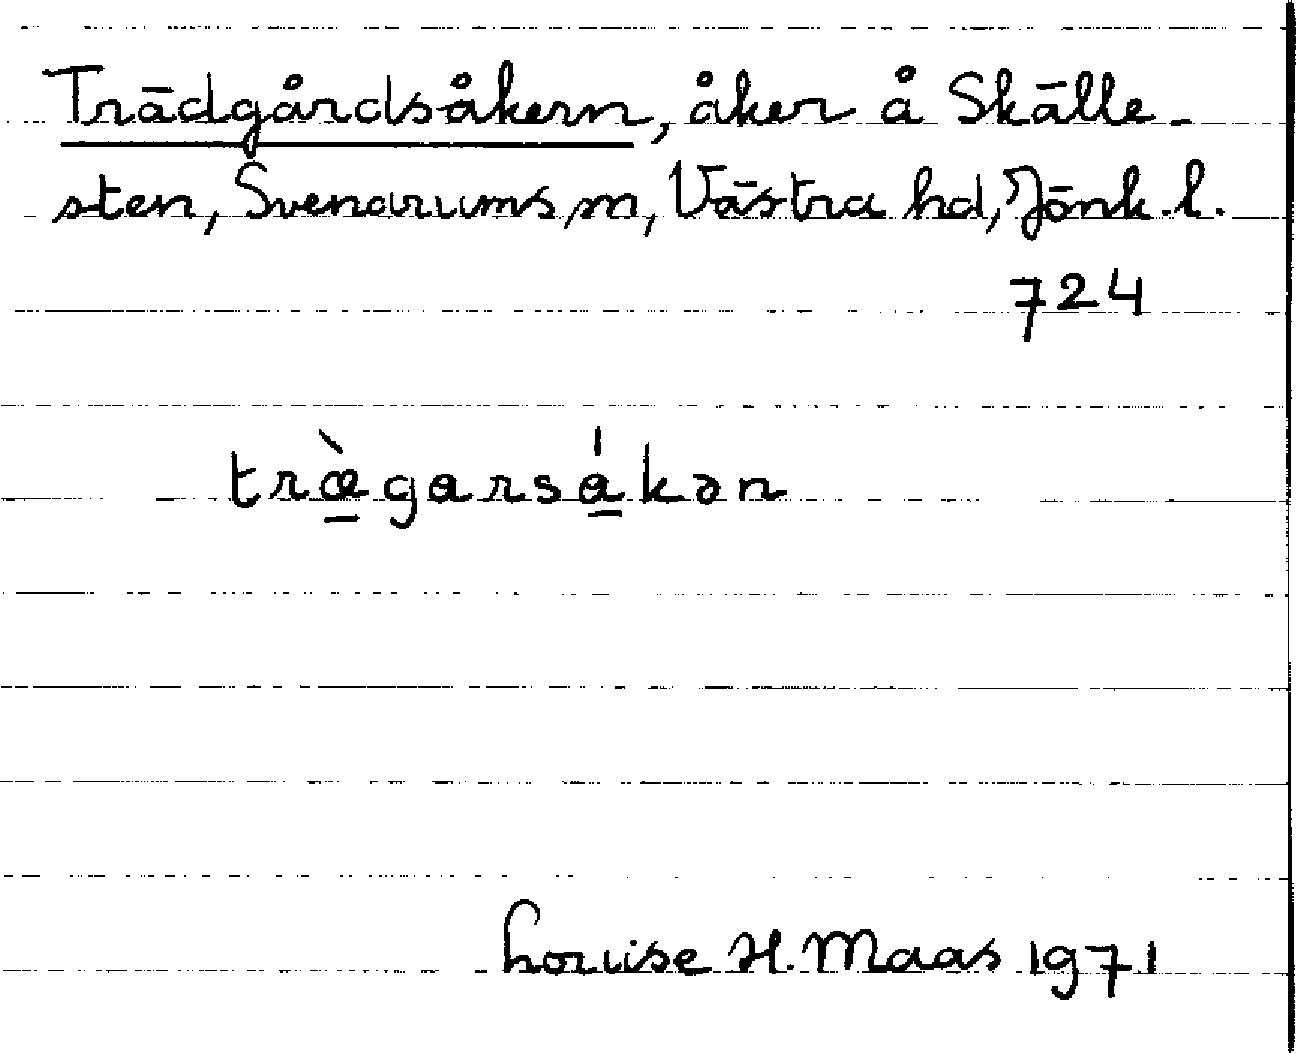 Trädgårdsåkern, åker å Skälle-
sten, Svenarums sn, Västra hd, Jönk. l.
724
træ̠̀garsá̠kən
Louise H. Maas 1971